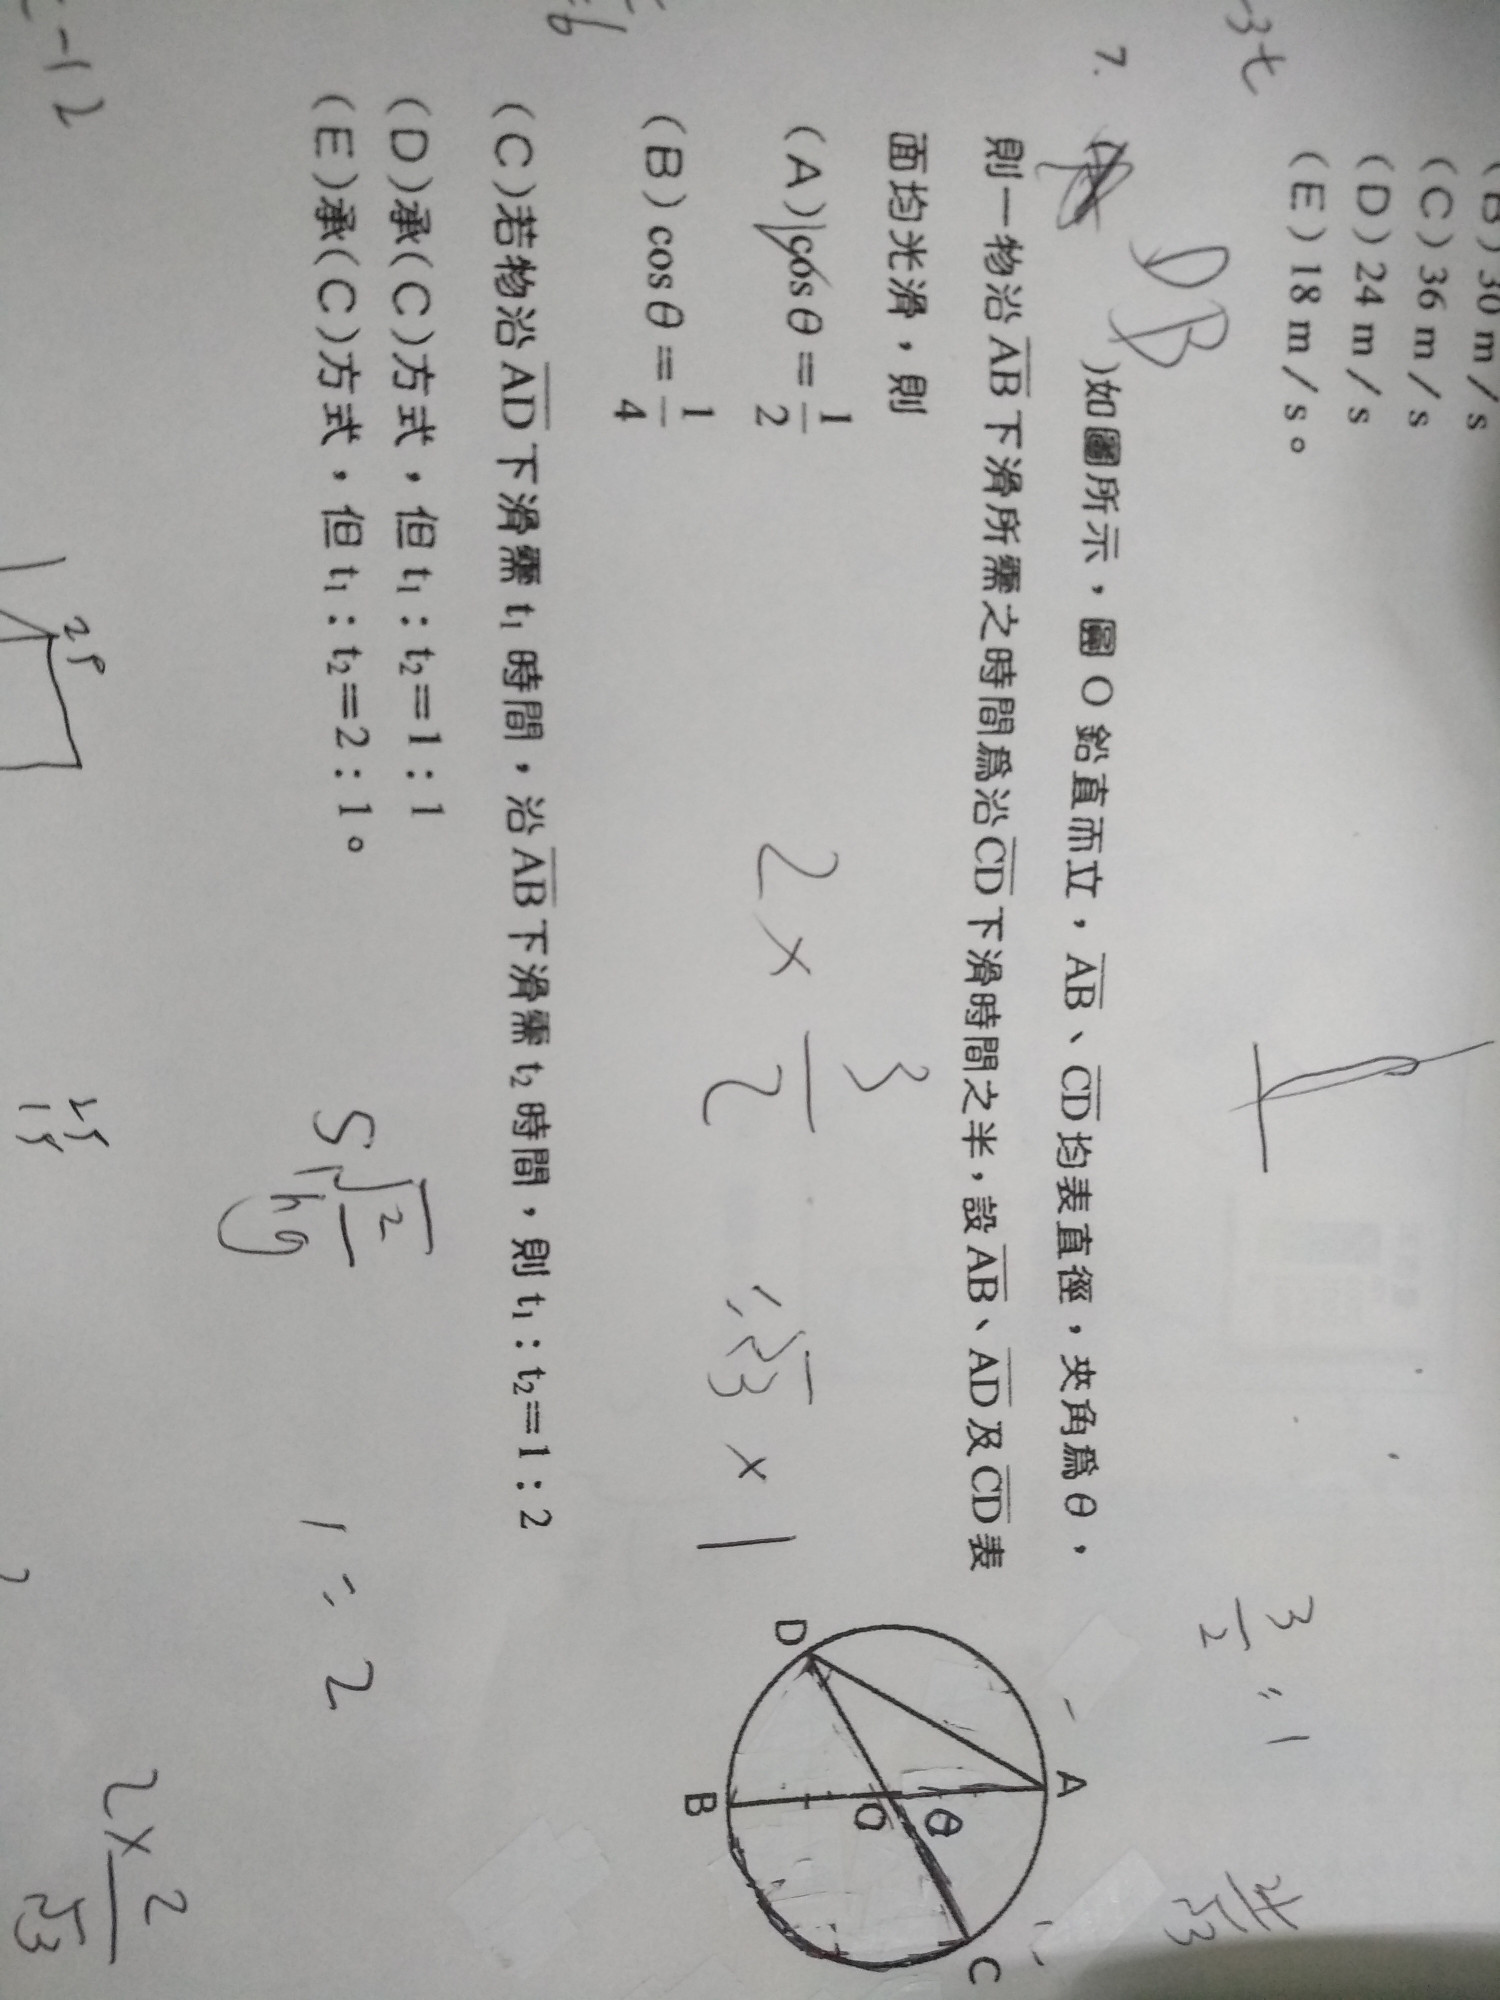 -3t
(B)30 m/s
(C)36 m/s
(D)24 m/s
(E)18 m/s。
DB
7. ( )如圖所示，圓 O 鉛直而立，AB、CD均表直徑，夾角爲θ，
則一物沿AB下滑所需之時間爲沿CD下滑時間之半，設AB、AD及CD表
面均光滑，則
(A)cosθ=1/2
(B)cosθ=1/4
(C)若物沿AD下滑需 t₁ 時間，沿AB下滑需 t₂ 時間，則 t₁：t₂=1：2
(D)承(C)方式，但 t₁：t₂=1：1
(E)承(C)方式，但 t₁：t₂=2：1。
A
D
θ
O
B
C
3/2 = 1
2 × 3/2
× 1
S√2/hg
1 = 2
2 × 2/√3
-12